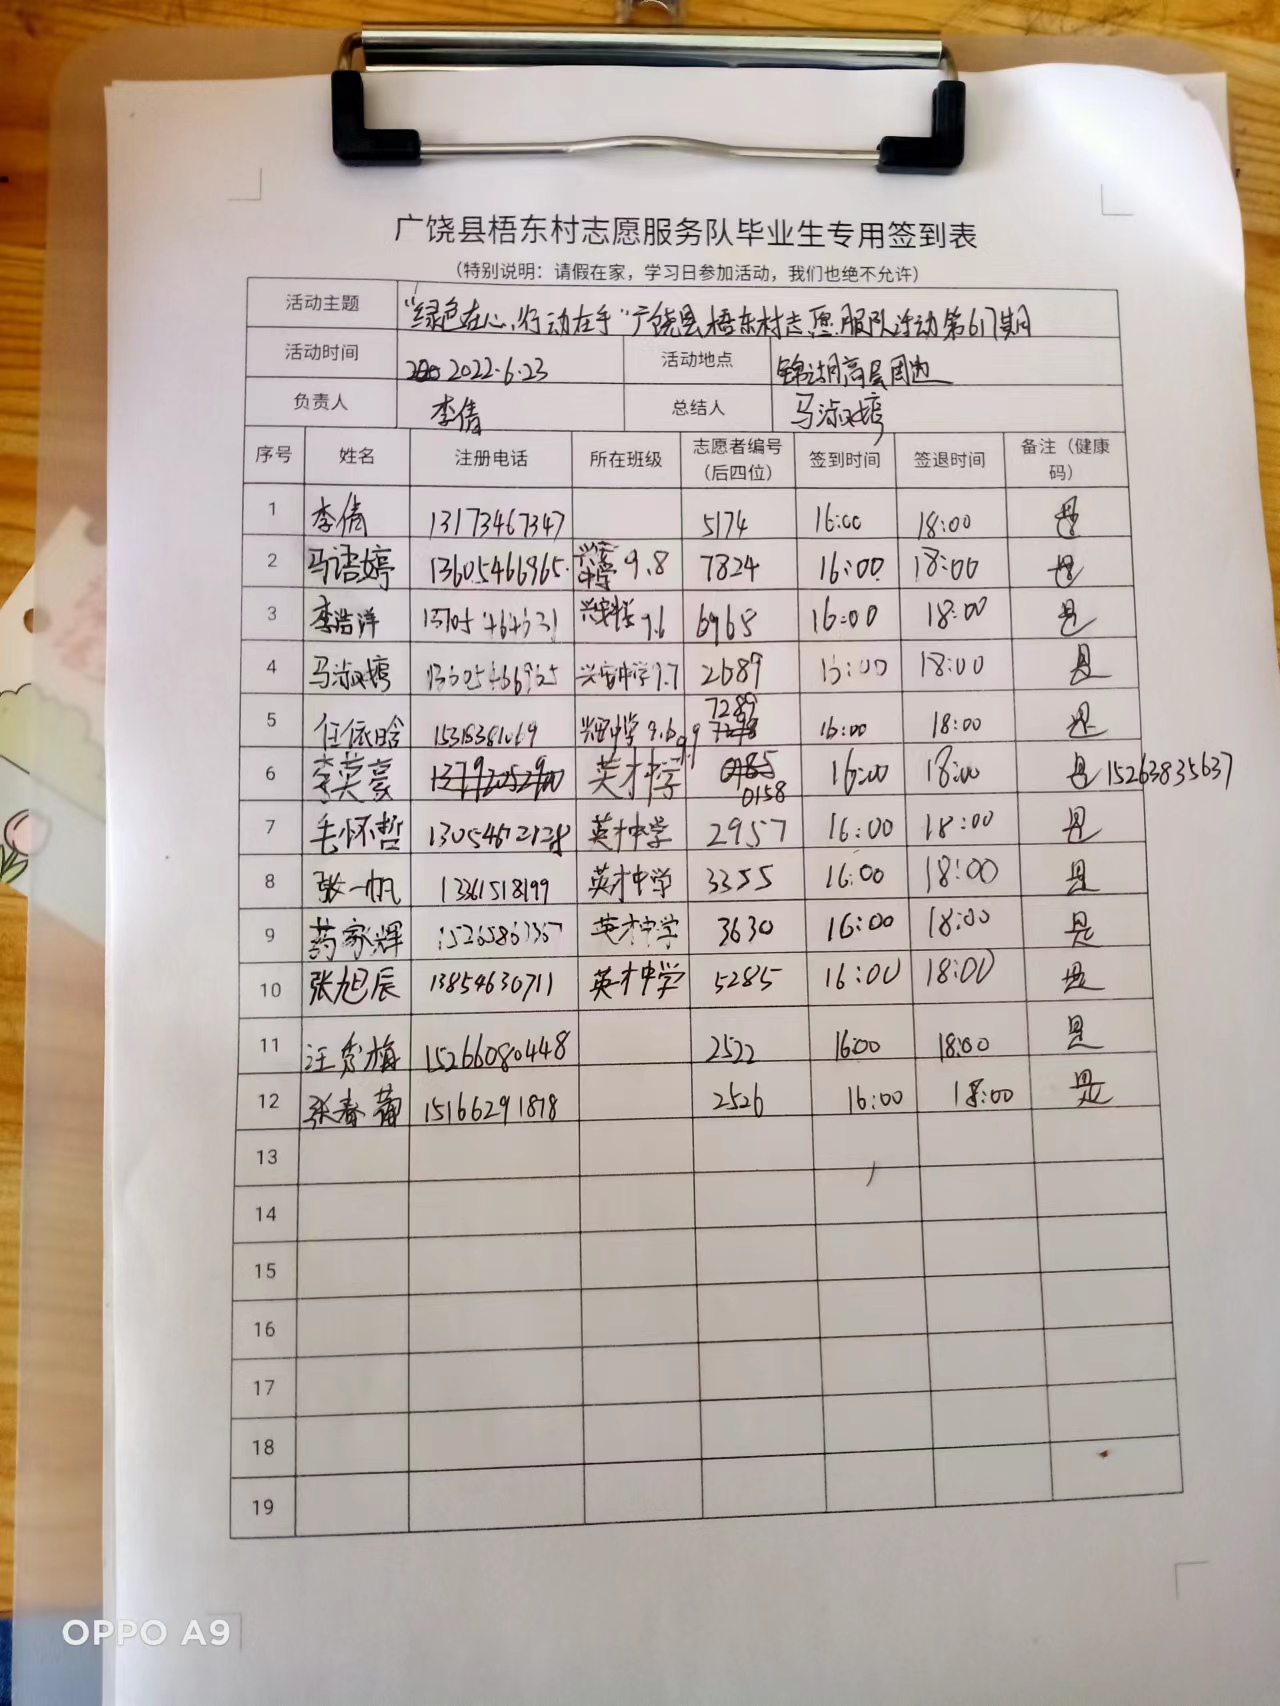 广饶县梧东村志愿服务队毕业生专用签到表
（特别说明：请假在家，学习日参加活动，我们也绝不允许）
活动主题 “绿色在心，行动在手”广饶县梧东村志愿服队活动第617期
活动时间 2022.6.23 活动地点 锦湖高层周边
负责人 李倩 总结人 马淑婷
序号 姓名 注册电话 所在班级 志愿者编号（后四位） 签到时间 签退时间 备注（健康码）
1 李倩 13173467347 5174 16:00 18:00 是
2 马语婷 13605466965 兴安中学 9.8 7824 16:00 18:00 是
3 李浩洋 9.6 6965 16:00 18:00 是
4 马淑婷 13605466965 兴安中学9.7 2689 16:00 18:00 是
5 任依晗 中学 9.6 7289 16:00 18:00 是
6 李英豪 英才中学 9.9 0158 16:00 18:00 是 15263835637
7 毛怀哲 英才中学 2957 16:00 18:00 是
8 张一帆 13361518199 英才中学 3355 16:00 18:00 是
9 药家辉 英才中学 3630 16:00 18:00 是
10 张旭辰 13854630711 英才中学 5285 16:00 18:00 是
11 汪秀梅 15266080448 2522 16:00 18:00 是
12 张春 15166291878 2526 16:00 18:00 是
13
14
15
16
17
18
19
OPPO A9